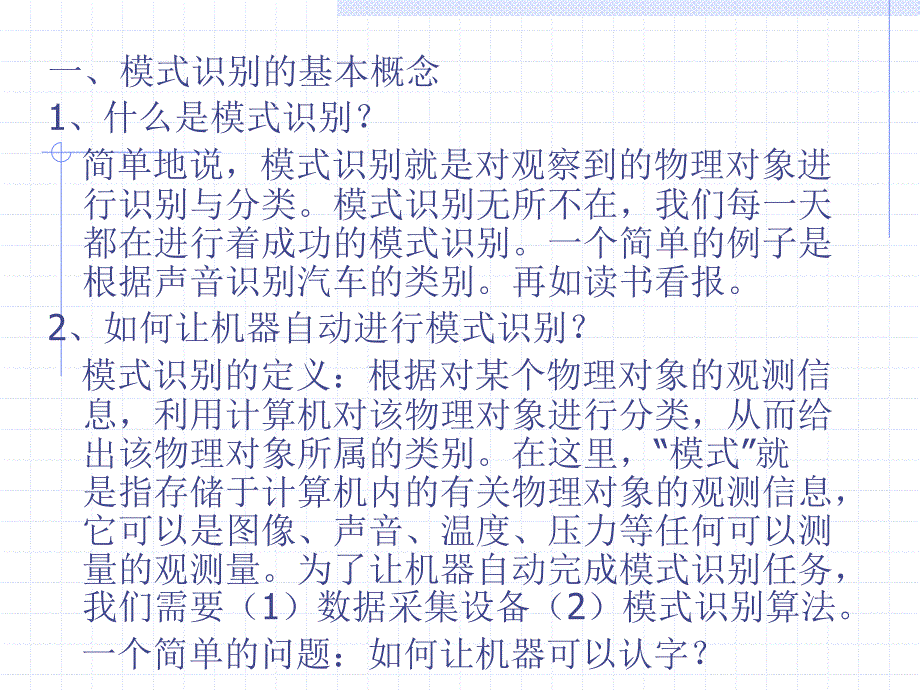 一、模式识别的基本概念
1、什么是模式识别？
简单地说，模式识别就是对观察到的物理对象进
行识别与分类。模式识别无所不在，我们每一天
都在进行着成功的模式识别。一个简单的例子是
根据声音识别汽车的类别。再如读书看报。
2、如何让机器自动进行模式识别？
模式识别的定义：根据对某个物理对象的观测信
息，利用计算机对该物理对象进行分类，从而给
出该物理对象所属的类别。在这里，“模式”就
是指存储于计算机内的有关物理对象的观测信息，
它可以是图像、声音、温度、压力等任何可以测
量的观测量。为了让机器自动完成模式识别任务，
我们需要（1）数据采集设备（2）模式识别算法。
一个简单的问题：如何让机器可以认字？